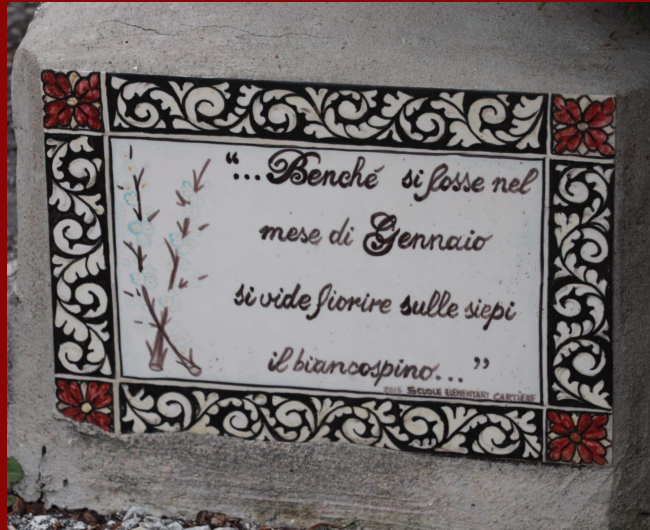 “...Benché si fosse nel
mese di Gennaio
si vide fiorire sulle siepi
il biancospino...”
2015 SCUOLE ELEMENTARI CARTIERE